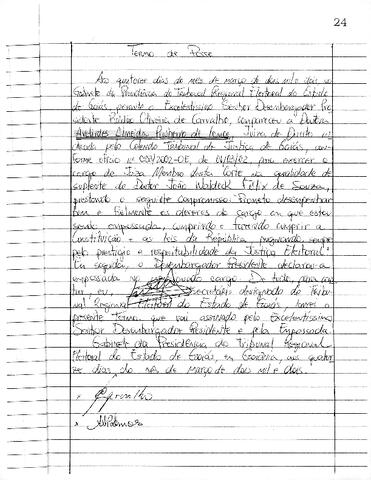 24
Termo de Posse
Aos quatorze dias do mês de março de dois mil e dois, no
Gabinete da Presidência do Tribunal Regional Eleitoral do Estado
de Goiás, perante o Excelentíssimo Senhor Desembargador Pre
sidente Roldão Oliveira de Carvalho, compareceu a Doutora
Avelirdes Almeida Pinheiro de Lemos, Juíza de Direito in
dicada pelo Colendo Tribunal de Justiça de Goiás, con
forme ofício nº 2002-OE, de para exercer o
cargo de Juiz Membro desta Corte na qualidade de
suplente do Doutor João Waldeck Félix de Sousa,
prestando o seguinte compromisso: Prometo desempenhar
bem e fielmente os deveres do cargo em que estou
sendo empossada, cumprindo e fazendo cumprir a
Constituição e as leis da República, pugnando sempre
pelo prestígio e respeitabilidade da Justiça Eleitoral.
Em seguida, o Desembargador Presidente declarou-a
empossada no cargo. De tudo, para cons
tar, eu, Secretário designado do Tribu
nal Regional Eleitoral do Estado de Goiás, lavrei o
presente Termo, que vai assinado pelo Excelentíssimo
Senhor Desembargador Presidente e pela Empossada.
Gabinete da Presidência do Tribunal Regional
Eleitoral do Estado de Goiás, em Goiânia, aos quator
ze dias do mês de março de dois mil e dois.